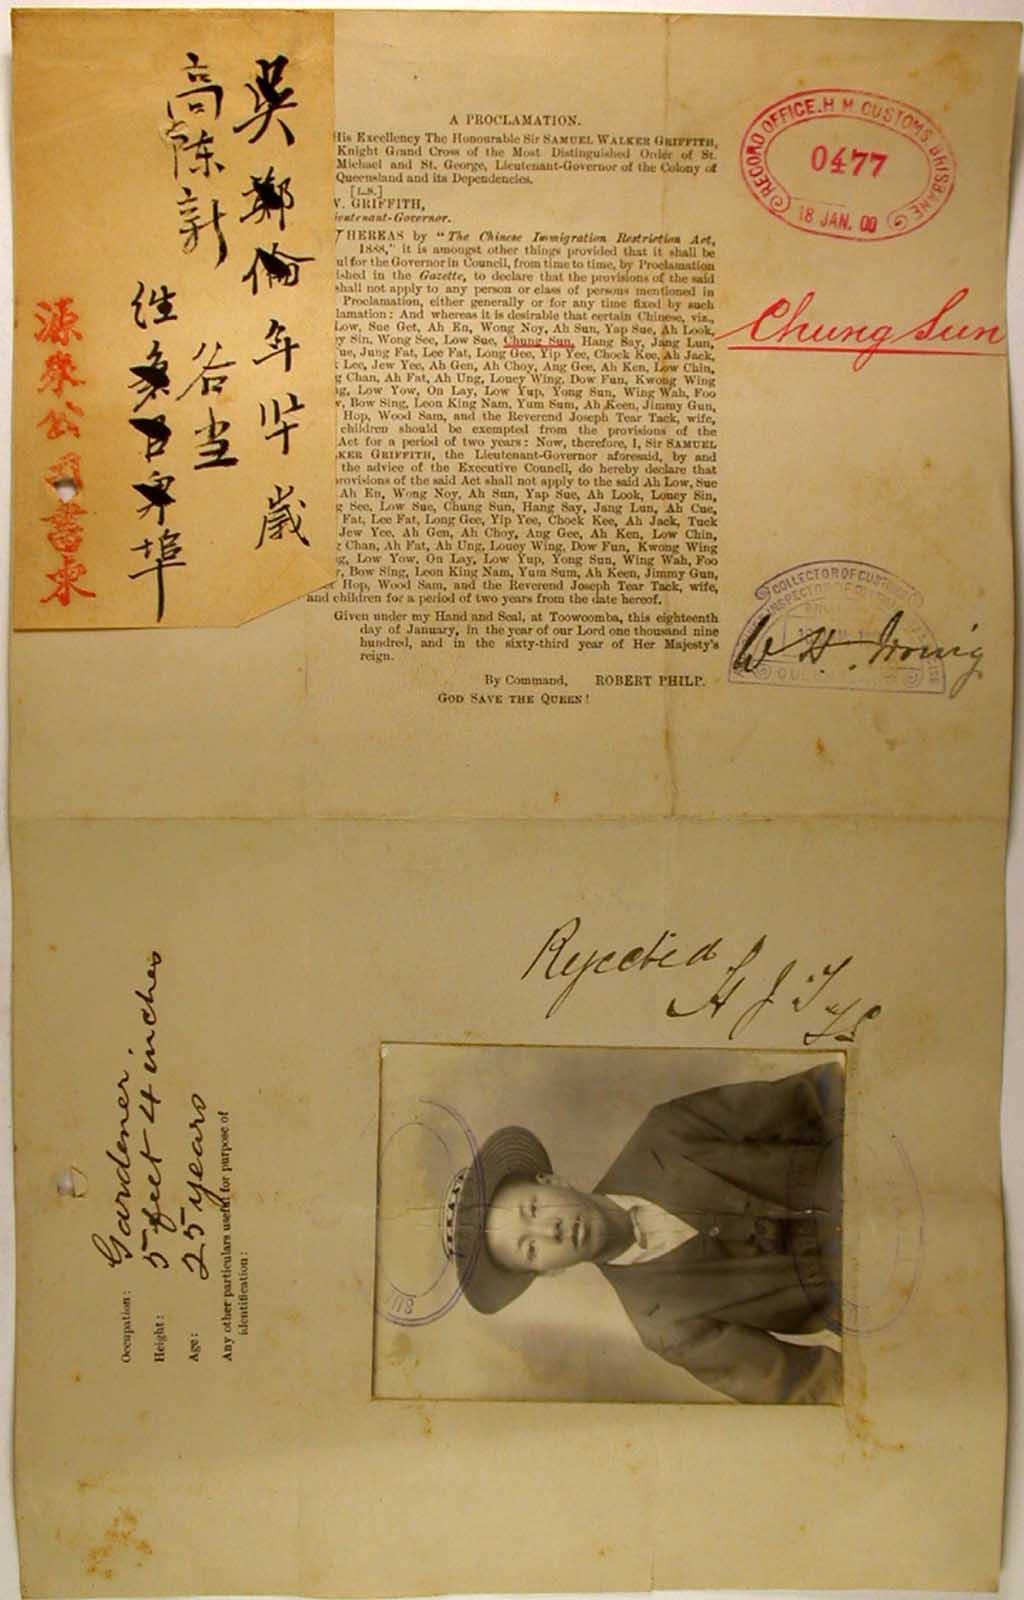 吳鄭倫年卅歲
高陳新
谷当
往
埠
源來公司書柬
A PROCLAMATION.
His Excellency The Honourable Sir SAMUEL WALKER GRIFFITH,
Knight Grand Cross of the Most Distinguished Order of St.
Michael and St. George, Lieutenant-Governor of the Colony of
Queensland and its Dependencies.
[L.S.]
W. GRIFFITH,
ieutenant-Governor.
HEREAS by "The Chinese Immigration Restriction Act,
1888," it is amongst other things provided that it shall be
ul for the Governor in Council, from time to time, by Proclamation
ished in the Gazette, to declare that the provisions of the said
shall not apply to any person or class of persons mentioned in
Proclamation, either generally or for any time fixed by such
lamation: And whereas it is desirable that certain Chinese, viz.,
Low, Sue Get, Ah En, Wong Noy, Ah Sun, Yap Sue, Ah Look,
ey Sin, Wong See, Low Sue, Chung Sun, Hang Say, Jang Lun,
ue, Jung Fat, Lee Fat, Long Gee, Yip Yee, Chock Kee, Ah Jack,
k Lee, Jew Yee, Ah Gen, Ah Choy, Ang Gee, Ah Ken, Low Chin,
g Chan, Ah Fat, Ah Ung, Louey Wing, Dow Fun, Kwong Wing
g, Low Yow, On Lay, Low Yup, Yong Sun, Wing Wah, Foo
, Bow Sing, Leon King Nam, Yum Sum, Ah Keen, Jimmy Gun,
Hop, Wood Sam, and the Reverend Joseph Tear Tack, wife,
children should be exempted from the provisions of the
Act for a period of two years: Now, therefore, I, Sir SAMUEL
KER GRIFFITH, the Lieutenant-Governor aforesaid, by and
the advice of the Executive Council, do hereby declare that
provisions of the said Act shall not apply to the said Ah Low, Sue
Ah En, Wong Noy, Ah Sun, Yap Sue, Ah Look, Louey Sin,
g See, Low Sue, Chung Sun, Hang Say, Jang Lun, Ah Cue,
Fat, Lee Fat, Long Gee, Yip Yee, Chock Kee, Ah Jack, Tuck
Jew Yee, Ah Gen, Ah Choy, Ang Gee, Ah Ken, Low Chin,
g Chan, Ah Fat, Ah Ung, Louey Wing, Dow Fun, Kwong Wing
g, Low Yow, On Lay, Low Yup, Yong Sun, Wing Wah, Foo
, Bow Sing, Leon King Nam, Yum Sum, Ah Keen, Jimmy Gun,
Hop, Wood Sam, and the Reverend Joseph Tear Tack, wife,
and children for a period of two years from the date hereof.
Given under my Hand and Seal, at Toowoomba, this eighteenth
day of January, in the year of our Lord one thousand nine
hundred, and in the sixty-third year of Her Majesty's
reign.
By Command, ROBERT PHILP.
GOD SAVE THE QUEEN!
RECORD OFFICE. H M CUSTOMS BRISBANE
0477
18 JAN. 00
Chung Sun
COLLECTOR OF CUSTOMS
W H Irving
Rejected
Occupation: Gardener
Height: 5 feet 4 inches
Age: 25 years
Any other particulars useful for purpose of
identification: